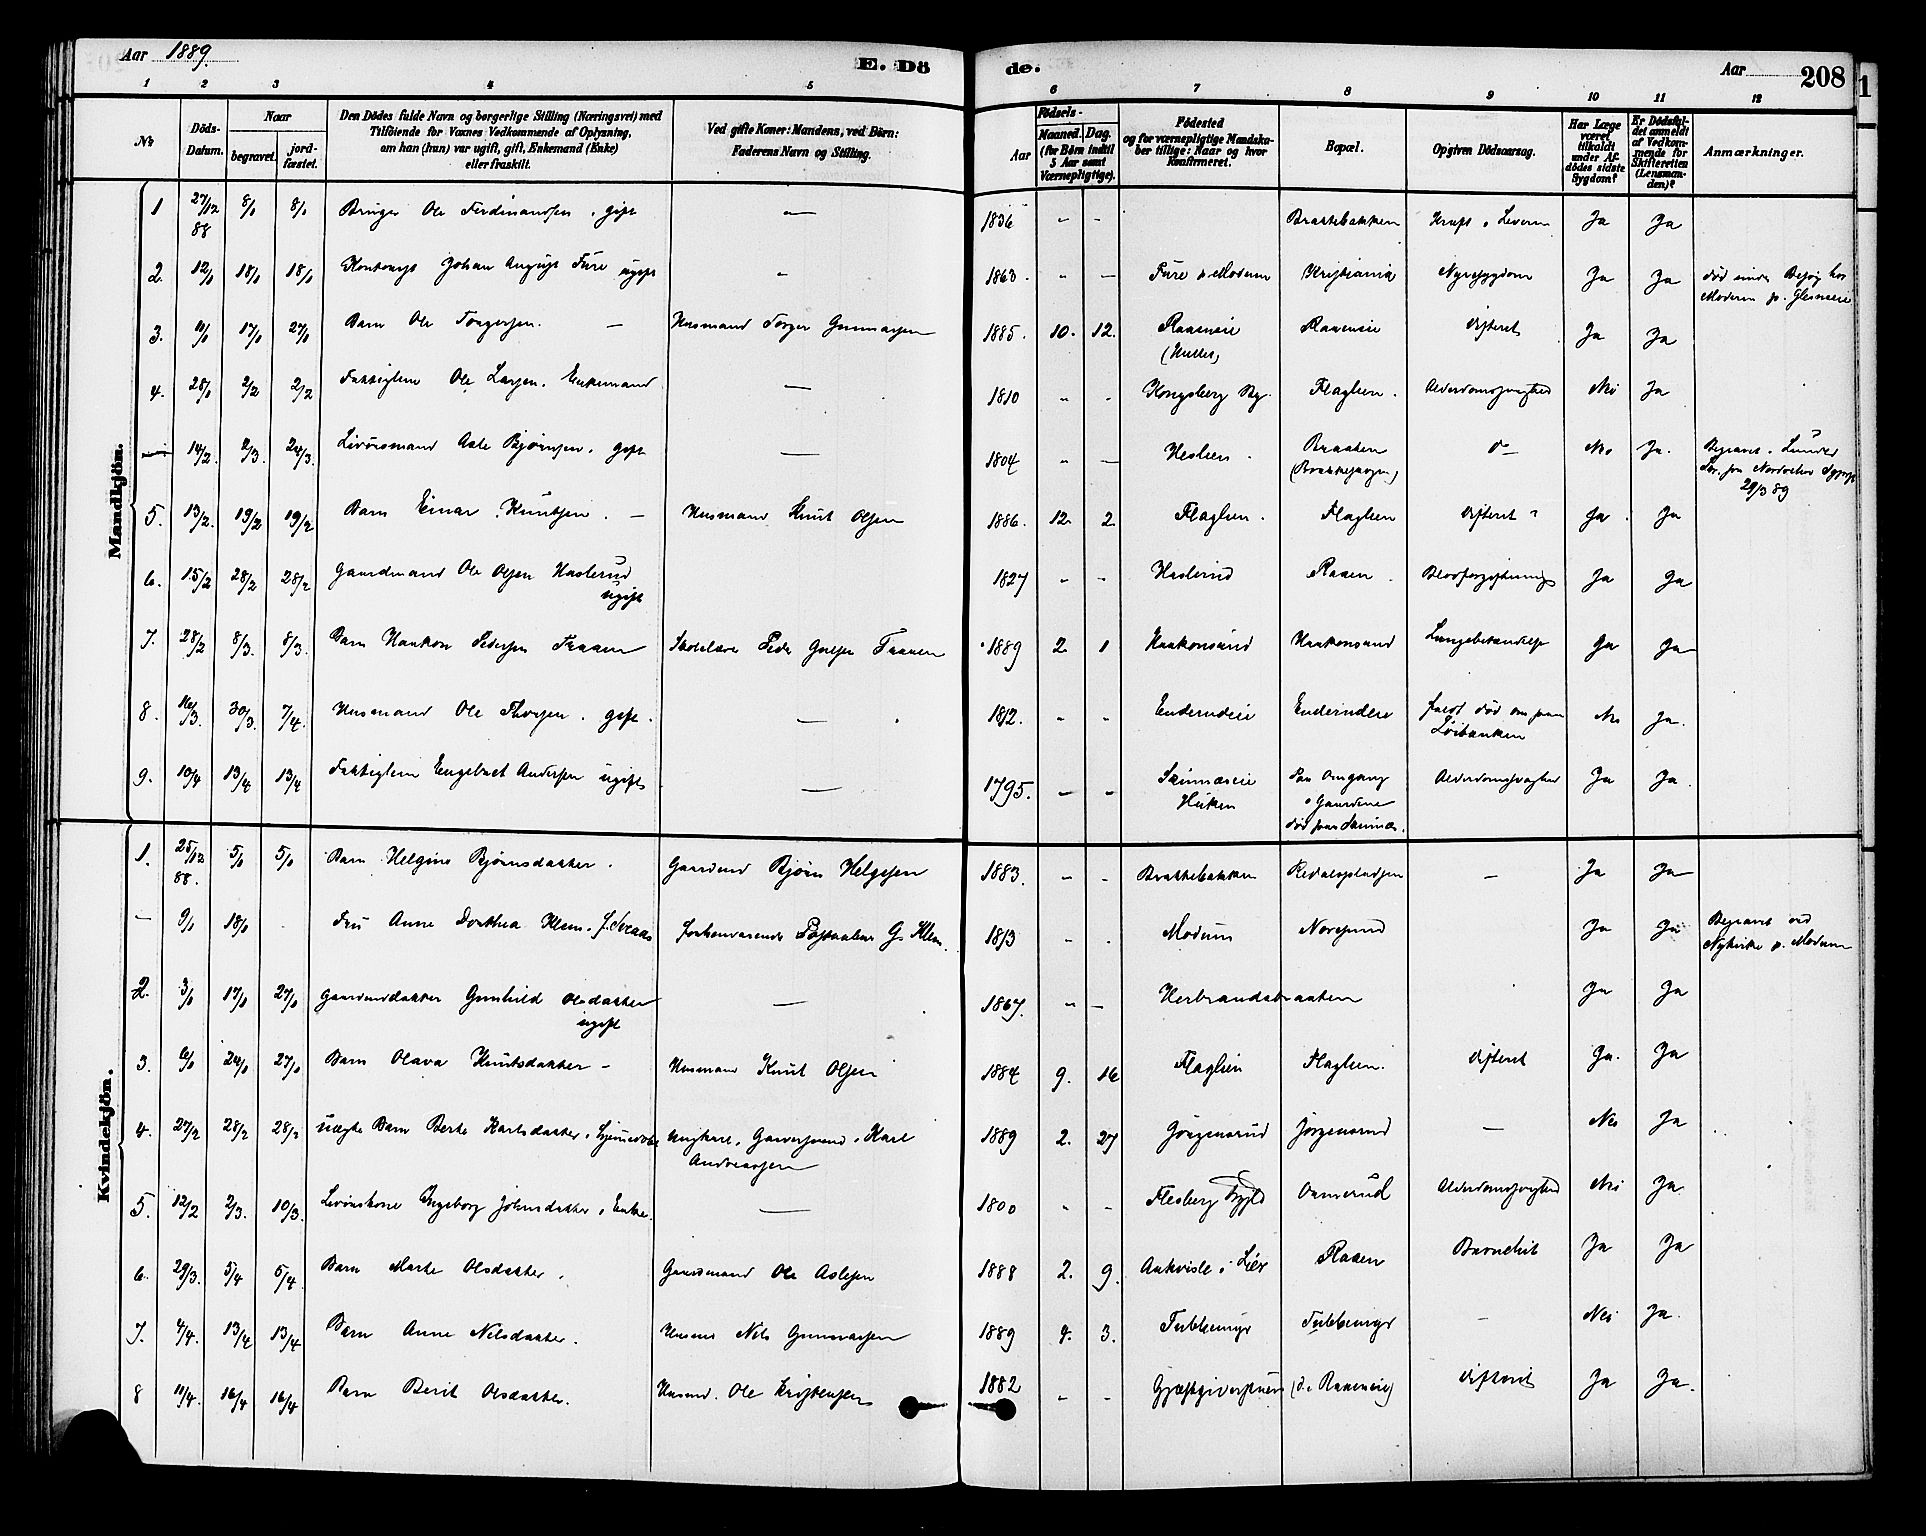 Aar 1889. E. Dö de. Aar 208
1 2 3 4 5 6 7 8 9 10 11 12
No
Döds-Datum.
Naar
begravet.
jord-fæstet.
Den Dödes fulde Navn og borgerlige Stilling (Næringsvei) med
Tilföiende for Voxnes Vedkommende af Oplysning,
om han (hun) var ugift, gift, Enkemand (Enke)
eller fraskilt.
Ved gifte Koner: Mandens, ved Börn:
Faderens Navn og Stilling.
Födsels-
Aar
Maaned. Dag.
(for Börn indtil
5 Aar samt
Værnepligtige).
Födested
og for værnepligtige Mandska-
ber tillige: Naar og hvor
konfirmeret.
Bopæl.
Opgiven Dödsaarsag.
Har Læge
været
tilkaldt
under Af-
dödes sidste
Sygdom?
Er Dödsfal-
det anmeldt
af Vedkom-
mende for
Skifteretten
(Lensman-
den)?
Anmærkninger.
Mandkjön.
1 27/12 88 8/1 8/1 Bruger Ole Ferdinandsen, gift — 1836 - - Brattebakken Kræft i Leveren Ja Ja
2. 12/1 18/1 18/1 Kontorist Johan August Fure ugift - 1863 - — Fure p. Modum Kristiania Nyresygdom Ja Ja død under Besøg hos
Moderen p.
3. 17/1 27/1 Barn Ole Torgersen. — Husmand Torger Gunnarsen 1885. 10. 12. Raaeneie Raaeneie Difterit Ja Ja
4. 28/1 2/2 2/2 Fattiglem Ole Larsen. Enkemand — 1810 - - Kongsberg By. Flaglien. Alderdomssvaghed Nei Ja
— 14/2. 2/3. 24/3. Livørsmand Asle Bjørnsen, gift — 1804 - — Braaten do Nei Ja. Begravet i Lunder
29/3 89
5. 13/2. 19/2 19/2 Barn Einar Knutsen. — Husmand Knut Olsen 1886. 12. 2. Flaglien. Flaglien Difterit Ja Ja
6. 15/2 28/2 28/2 Gaardmand Ole Olsen Haslerud
ugift 1827 - - Haslerud Raaen Blodforgiftning Ja Ja
7. 28/2 8/3. 8/3. Barn Haakon Pedersen Fraaen Skolelærer Peder Fraaen 1889 2. 1 Haakonsund Haakonsund Lungebetændelse Ja Ja
8. 16/3. 30/3. 7/4. Husmand Ole Thorsen, gift. — 1812. - - Enderudeie Enderudeie død
Nei Ja.
9. 10/4 13/4 13/4 Fattiglem Engebret Andersen ugift — 1795. — - Paa Omgang
i Gaardene
død paa
Alderdomssvaghed Ja Ja.
Kvindekjön.
1. 25/12 88. 5/1 5/1 Barn Helgine Bjørnsdatter. Gaardmd Bjørn Helgesen 1883. - - Brattebakken — Ja Ja
— 9/1 18/1 Fru Anne Dorthea Klem. f. G. Klem. 1813 - - Modum Noresund Ja Ja Begravet ved
Nykirke p. Modum
2. 3/1 17/1 27/1 Gaardmdsdatter Gunhild Olsdatter — 1867. - — Herbrandsbraaten Ja Ja
ugift
3. 6/1 24/1 27/1 Barn Olava Knutsdatter — Husmand Knut Olsen 1884 9. 16 Flaglien Flaglien. Difterit Ja. Ja
4. 27/2 28/2 28/2 Uægte Barn Berte Karlsdatter, Ungkarl, Garversvend, Karl
Andreassen 1889 2. 27 Jørgensrud Jørgensrud — Nei Ja
5. 12/2 2/3. 10/3. Livørskone Ingeborg Johnsdatter, Enke. — 1800 - - Flesberg Aamerud Alderdomssvaghed Nei Ja
6. 29/3. 5/4 5/4 Barn Marte Olsdatter. Gaardmand Ole Aslesen 1888 2. 9. i Lier Raaen Ja Ja
7. 4/4. 13/4 13/4 Barn Anne Nilsdatter. Husmd Nils Gunnarsen 1889 4. 3. Tubbemyr Tubbemyr - Nei Ja.
8 11/4. 16/4 16/4 Barn Berit Olsdatter. Husmd. Ole Kristensen 1882 - - (i Raaeneie) Difterit Ja Ja.